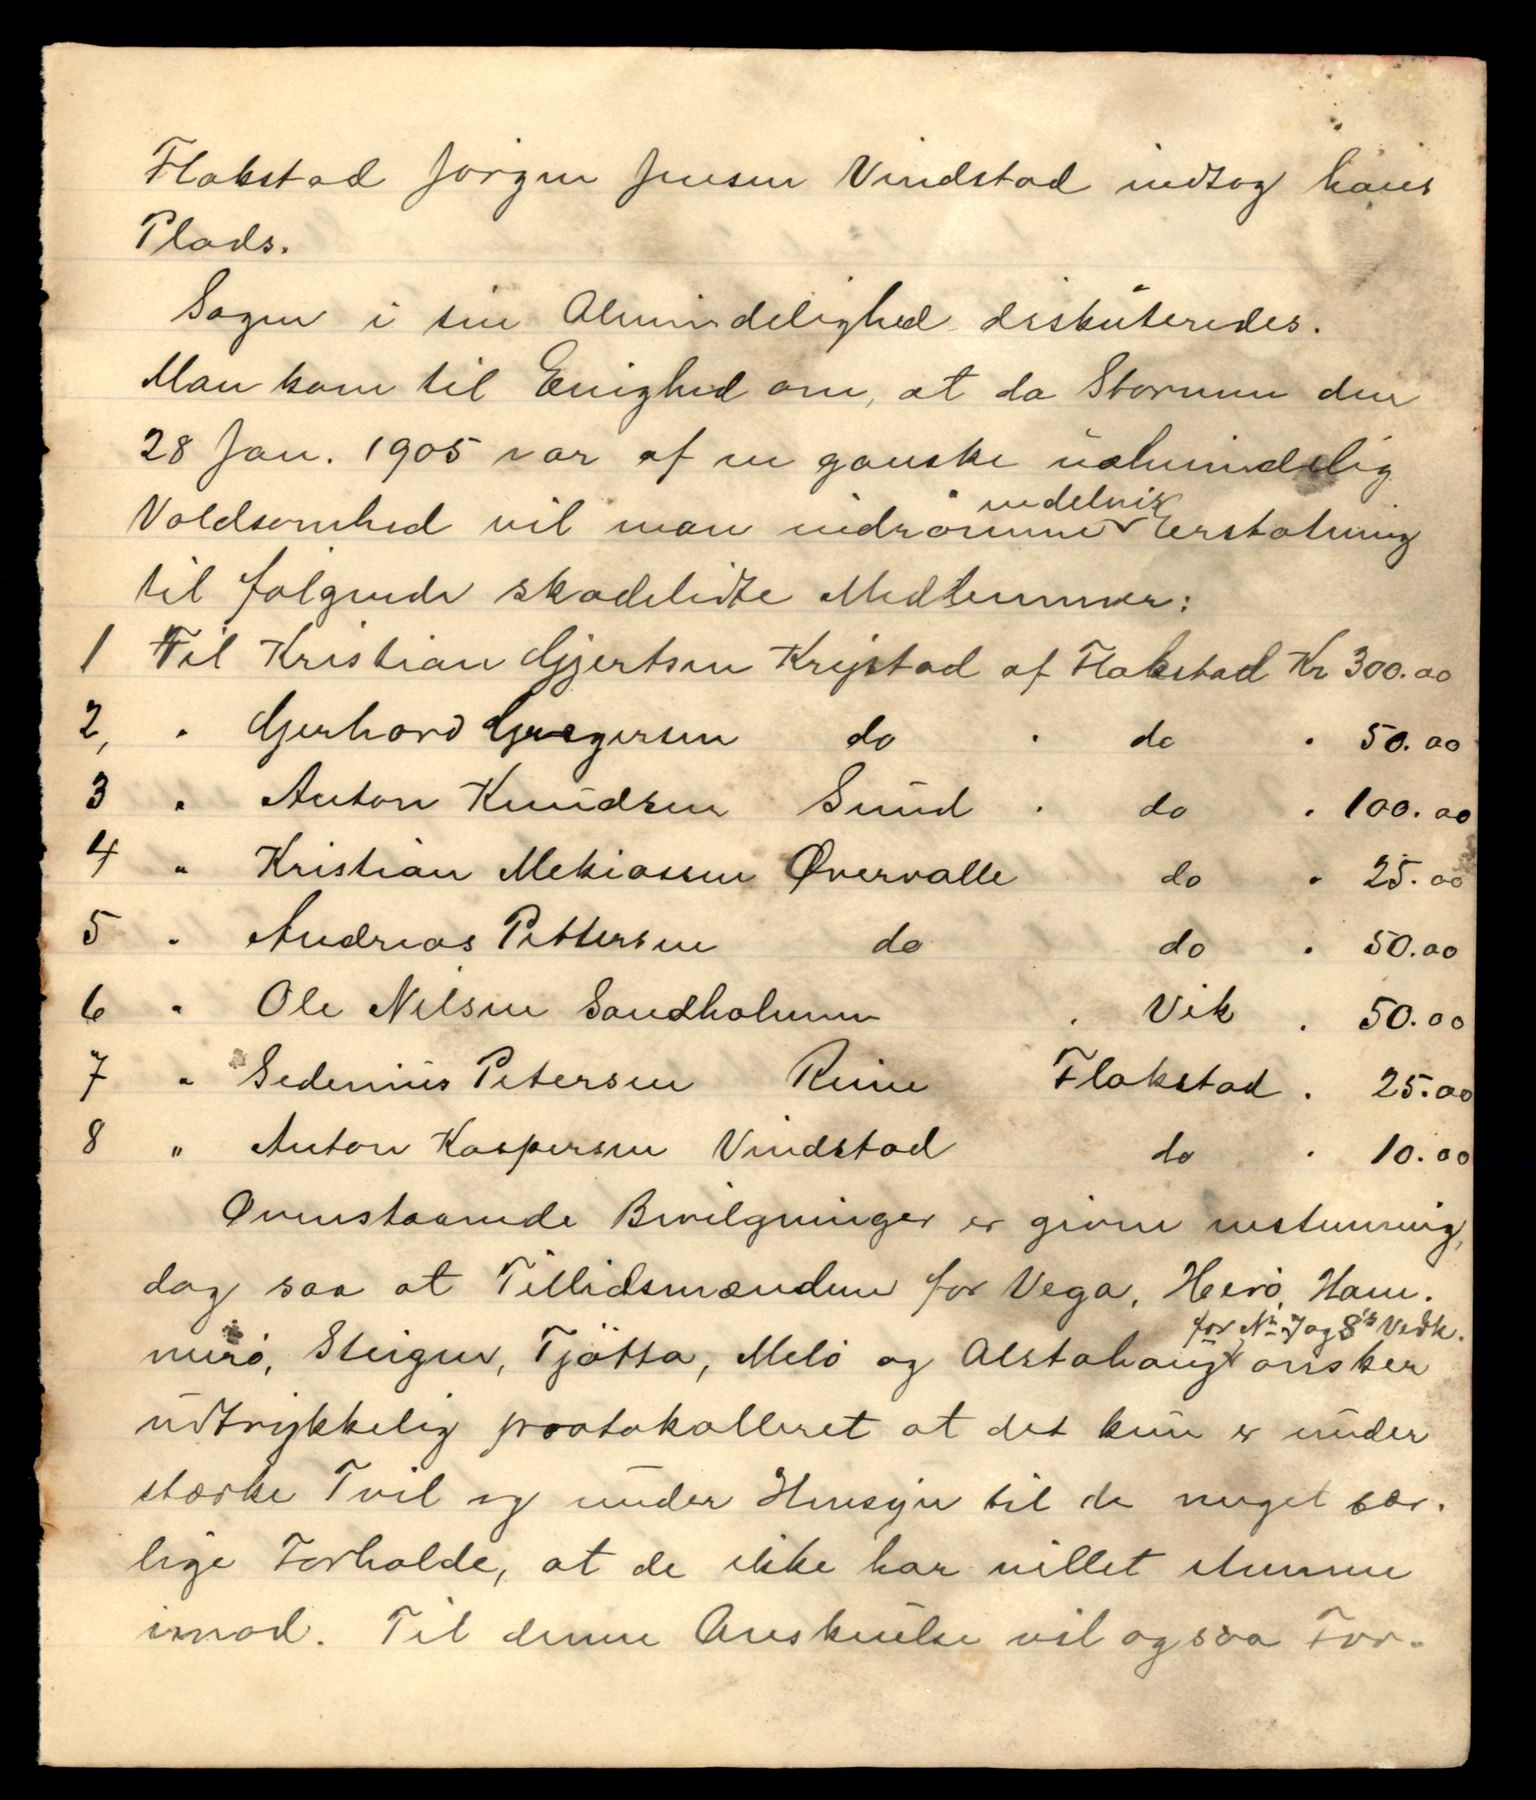 Flakstad Jörgen Jensen Vindstad indtog hans
Plads.
Sagen i sin Almindelighed diskuteredes.
Man kom til Enighed om, at da Stormen den
28 Jan. 1905 var af en ganske ualmindelig
Voldsomhed vil man indrömme endelvis Erstatning
til følgende skadelidte Medlemmer:
1 Til Kristian Gjertsen Krystad af Flakstad Kr 300.00
2, " Gerhard Gregersen do " do " 50.00
3 " Anton Knudsen Sund " do " 100.00
4 " Kristian Mekiassen Øvervalle do " 25.00
5 " Andreas Pettersen do do " 50.00
6 " Ole Nilsen Sandholmen " Vik " 50.00
7 " Sedenius Petersen Reine Flakstad " 25.00
8 " Anton Kaspersen Vindstad do " 10.00
Ovenstaaende Bevilgninger er givne enstemmig,
dog saa at Tillidsmændene for Vega, Herö, Ham-
merö, Steigen, Tjötta, Melö og Alstahaug for No 7 og 8's Vedk. önsker
udtrykkelig protokolleret at det kun er under
stærke Tvil og under Hensyn til de meget sær-
lige Forholde, at de ikke har villet stemme
imod. Til denne Anskuelse vil ogsaa For-